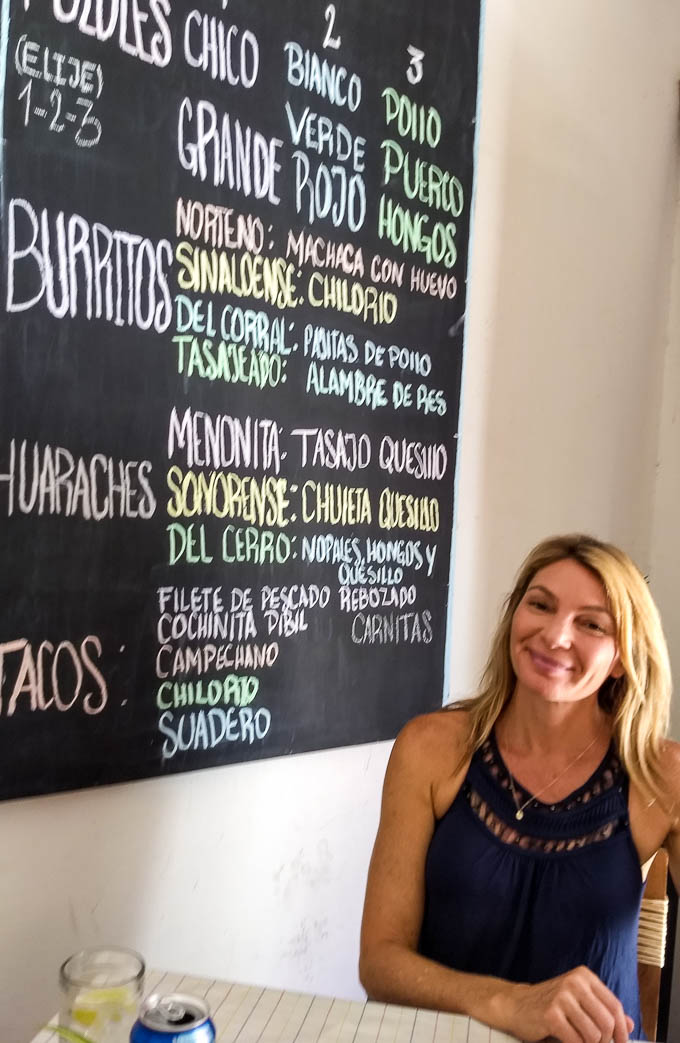 POZOLES CHICO
(ELIJE)
1-2-3
GRANDE
2
BLANCO
VERDE
ROJO
3
POLLO
PUERCO
HONGOS
BURRITOS
NORTENO: MACHACA CON HUEVO
SINALOENSE: CHILORIO
DEL CORRAL: PAJITAS DE POLLO
TASAJEADO: ALAMBRE DE RES
HUARACHES
MENONITA: TASAJO QUESILLO
SONORENSE: CHULETA QUESILLO
DEL CERRO: NOPALES, HONGOS Y
QUESILLO
TACOS:
FILETE DE PESCADO REBOZADO
COCHINITA PIBIL
CARNITAS
CAMPECHANO
CHILORIO
SUADERO